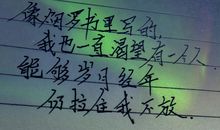 像小罗书里写的,
我也一直渴望有一个人
能够岁月经年
仍拉住我不放.